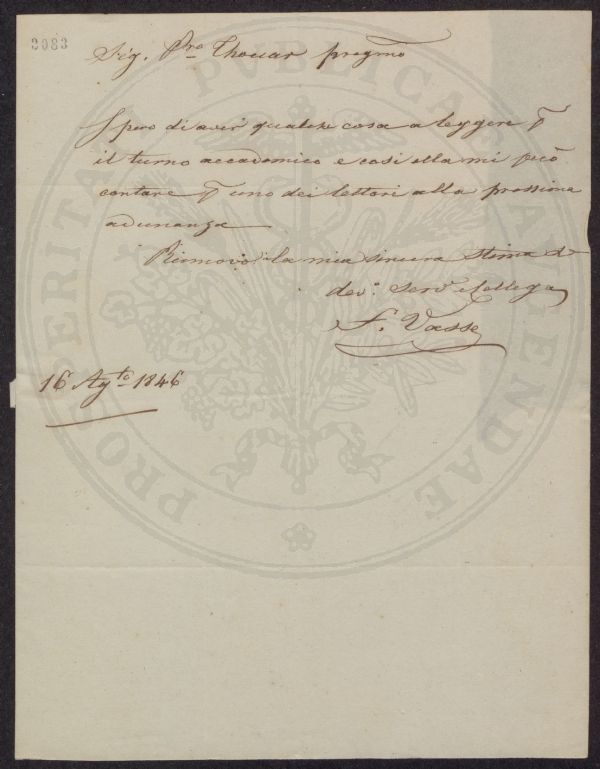 2083
Sig. Pre. Thouar pregmo
Spero di aver qualche cosa a leggere p
il turno accademico e così ella mi può
contare p uno dei lettori alla prossima
adunanza
Rinnovo la mia sincera stima
dev.o serv.e collega
F. Vasse
16 Agto 1846
PROSPERITATI PUBLICAE AUGENDAE